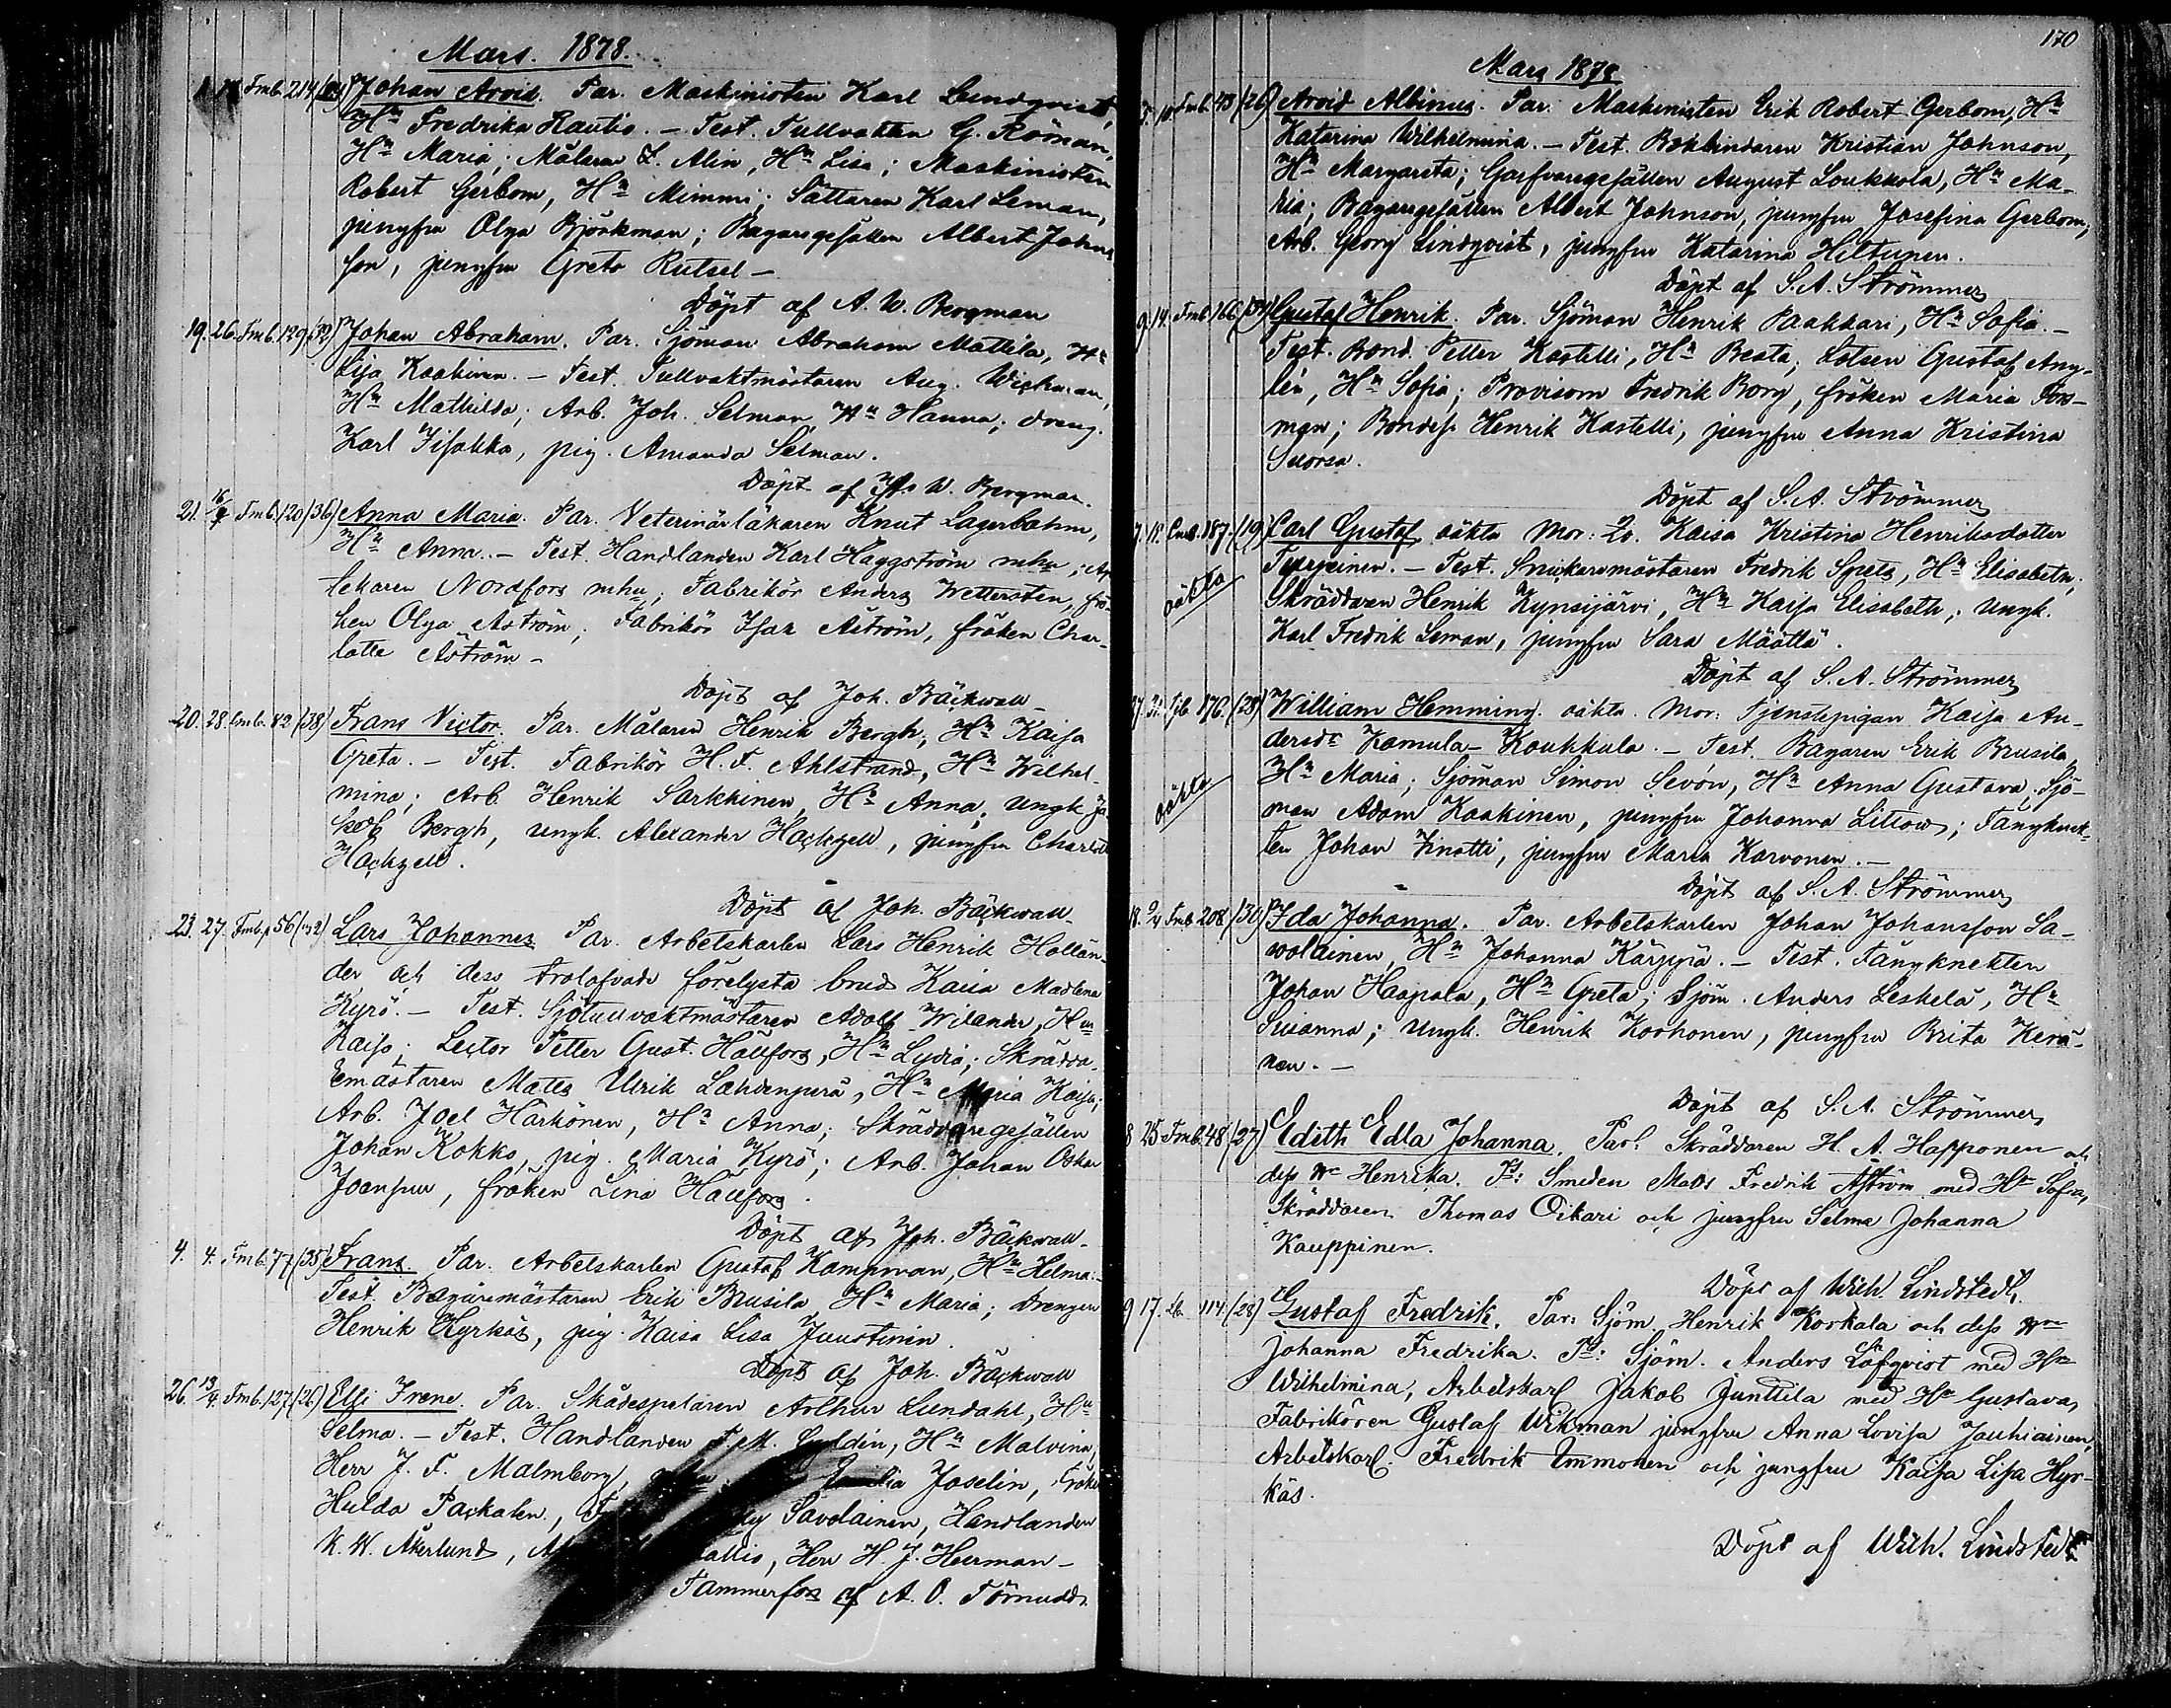 Mars. 1878.
Fmb. 214 Johan Arvid. Par. Maskinisten Karl Lundqvist,
Hn Fredrika Rautio. – Test. Tullvakten G. Röman,
Hn Maria; Målaren L. Alin, Hn Lisa; Maskinisten
Robert Gerbom, Hn Mimmi; Sättaren Karl Leman,
jungfru Olga Björkman; Bagaregesällen Albert John-
son, jungfru Greta Rutsel –
Döpt af A. W. Bergman
19. 26. Fmb. 129 (32) Johan Abraham. Par. Sjöman Abraham Mattila, Hn
Lisa Kaakinen. – Test. Tullvaktmästaren Aug. Wichman,
Hn Mathilda; Arb. Joh. Selman, Hn Hanna; dreng.
Karl Iisakka, pig. Amanda Selman.
Döpt af A. W. Bergman.
21. Fmb. 120 (36) Anna Maria. Par. Veterinärläkaren Knut Lagerbohm,
Hn Anna. – Test. Handlanden Karl Häggström mhu; Apo-
tekaren Nordfors mhu; Fabrikör Anders Wettersten, frö-
ken Olga Åström; Fabrikör Isak Åström, fröken Char-
lotte Åström –
Döpt af Joh. Bäckwall
20. 28. Fmb. 82 (38) Frans Victor. Par. Målaren Henrik Bergh, Hn Kaisa
Greta. – Test. Fabrikör H. F. Ahlstrand, Hn Wilhel-
mina; Arb Henrik Sarkkinen, Hn Anna; ungk. Ja-
kob Bergh, ungk. Alexander Hackzell, jungfru Charlott
Hackzell.
Döpt af Joh. Bäckwall
23. 27. Fmb. 56 Lars Johannes Par. Arbetskarlen Lars Henrik Hollän-
der och dess trolofvade förelysta brud Kaisa Madlena
Kyrö. – Test. Sjötullvaktmästaren Adolf Wilander, Hn
Kaisa; Lector Petter Gust. Hällfors, Hn Lydia; Skrädda-
remästaren Matts Ulrik Lahdenperä, Hn Maria Kaisa;
Arb. Joel Härkönen, Hn Anna; Skräddaregesällen
Johan Kokko, pig. Maria Kyrö; Arb. Johan Oskar
Joensuu, fröken Lina Hällfors.
Döpt af Joh. Bäckwall
4. 4. Fmb. 77 (35) Frans. Par. Arbetskarlen Gustaf Kampman, Hn Helma. –
Test. Bagaremästaren Erik Brusila, Hn Maria; Drengen
Henrik Hyrkäs, pig. Kaisa Lisa Juustinen.
Döpt af Joh. Bäckwall
26. 13/4 Fmb. 127 (26) Elli Irene. Par. Skådespelaren Arthur Lundahl, Hn
Selma. – Test. Handlanden F. M. Gyldén, Hn Malvina,
Herr J. F. Malmborg, Joselin, Fröken
Hulda Packalen, Savolainen, Handlanden
K. W. Åkerlund, Herr H. J. Heerman –
Tammerfors af A. O. Törnudd.
170
Mars 1878
10. Fmb. 43 (26) Arvid Albinus. Par. Maskinisten Erik Robert Gerbom, Hn
Katarina Wilhelmina. – Test. Bokbindaren Kristian Johnson,
Hn Margareta; Garfvaregesällen August Loukkola, Hn Ma-
ria; Bagaregesällen Albert Johnson, jungfru Josefina Gerbom;
Arb. Georg Lindqvist, jungfru Katarina Hiltunen.
Döpt af S. A. Strömmer
9. 14. Fmb. 166 Gustaf Henrik. Par. Sjöman Henrik Paakkari, Hn Sofia. –
Test. Bond. Petter Kastelli, Hn Beata; Lotsen Gustaf Ang-
lén, Hn Sofia; Provisorn Fredrik Borg, fröken Maria Fors-
man; Bondes. Henrik Kastelli, jungfru Anna Kristina
Suorsa.
Döpt af S. A. Strömmer
187. (19) Carl Gustaf, oäkta Mor: Lo. Kaisa Kristina Henriksdotter
oäkta
. – Test. Snickaremästaren Fredrik Spets, Hn Elisabeth;
Skräddaren Henrik Kynsijärvi, Hn Kaisa Elisabeth; Ungk.
Karl Fredrik Leman, jungfru Sara Määttä.
Döpt af S. A. Strömmer
176. (28) William Hemming. oäkta. Mor: Tjenstepigan Kaisa An-
oäkta
dersdr Kamula-Koukkula. – Test. Bagaren Erik Brusila,
Hn Maria; Sjöman Simon Sevón, Hn Anna Gustava; Sjö-
man Adam Kaakinen, jungfru Johanna Littow; Fångknek-
ten Johan Kinatti, jungfru Maria Karvonen. –
Döpt af S. A. Strömmer
18. Fmb. 208 (30) Ida Johanna. Par. Arbetskarlen Johan Johansson Sa-
wolainen, Hn Johanna Kärppä. – Test. Fångknekten
Johan Haapala, Hn Greta; Sjöm. Anders Leskelä, Hn
Susanna; Ungk. Henrik Korhonen, jungfru Brita Kerä-
nen. –
Döpt af S. A. Strömmer
8 25 Fmb. 48 (27) Edith Edla Johanna. Par: Skräddaren H. A. Happonen och
dess Hu Henrika. Ts: Smeden Mats Fredrik Åström med Hu Sofia,
Skräddaren Thomas Oikari och jungfru Selma Johanna
Kauppinen.
Döpt af Wilh. Lindstedt.
9 17. Lb. 114. (28) Gustaf Fredrik. Par: Sjöm. Henrik Korkala och dess Hu
Johanna Fredrika. Ts: Sjöm. Anders Löfqvist med Hu
Wilhelmina, Arbetskarl Jakob Junttila med Hu Gustava,
Fabrikören Gustaf Wikman jungfru Anna Lovisa Jauhiainen,
Arbetskarl. Fredrik Immonen och jungfru Kaisa Lisa Hyr-
käs.
Döpt af Wilh. Lindstedt